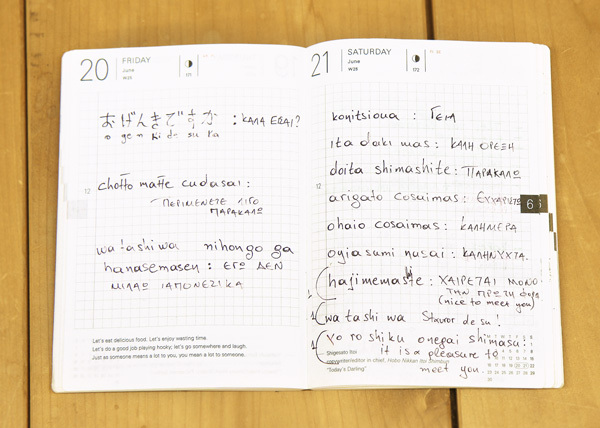 20 FRIDAY
June
W25
171
おげんきですか : ΚΑΛΑ ΕΙΣΑΙ?
o gen ki de su ka
12
chotto matte cudasai :
ΠΕΡΙΜΕΝΕΤΕ ΛΙΓΟ
ΠΑΡΑΚΑΛΩ
watashi wa nihongo ga
hanasemasen : ΕΓΩ ΔΕΝ
ΜΙΛΑΩ ΙΑΠΟΝΕΖΙΚΑ
Let's eat delicious food. Let's enjoy wasting time.
Let's do a good job playing hooky; let's go somewhere and laugh.
Just as someone means a lot to you, you mean a lot to someone.
21 SATURDAY
June
W25
172
konitsioua : ΓΕΙΑ
ita daki mas : ΚΑΛΗ ΟΡΕΞΗ
doita shimashite : ΠΑΡΑΚΑΛΩ
12
arigato cosaimas : ΕΥΧΑΡΙΣΤΩ
6
ohaio cosaimas : ΚΑΛΗΜΕΡΑ
oyiasumi nusai : ΚΑΛΗΝΥΧΤΑ.
hajimemaste : ΧΑΙΡΕΤΑΙ ΜΟΝΟ
ΤΗΝ ΠΡΩΤΗ ΦΟΡΑ
(nice to meet you)
1 watashi wa Stauros desu!
1 Yoroshiku onegai shimasu!!
it is a pleasure to
meet you.
Shigesato Itoi
copywriter/editor in chief, Hobo Nikkan Itoi Shimbun
"Today's Darling"